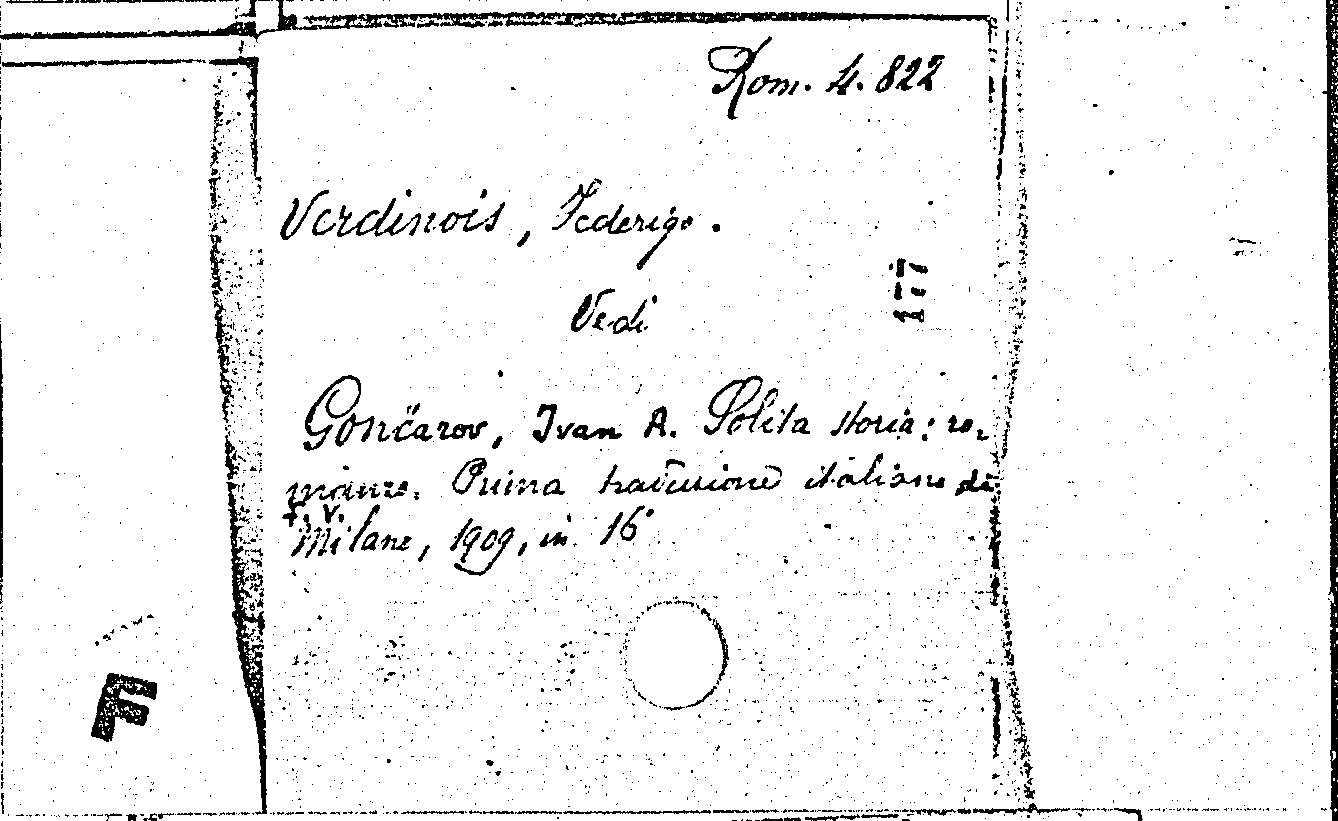 Rom. 4.822
Verdinois, Federigo.
177
Vedi
Gončarov, Ivan A. Solita storia: ro-
manzo. Prima traduzione italiana di
F. V.
Milano, 1909, in 16°
F